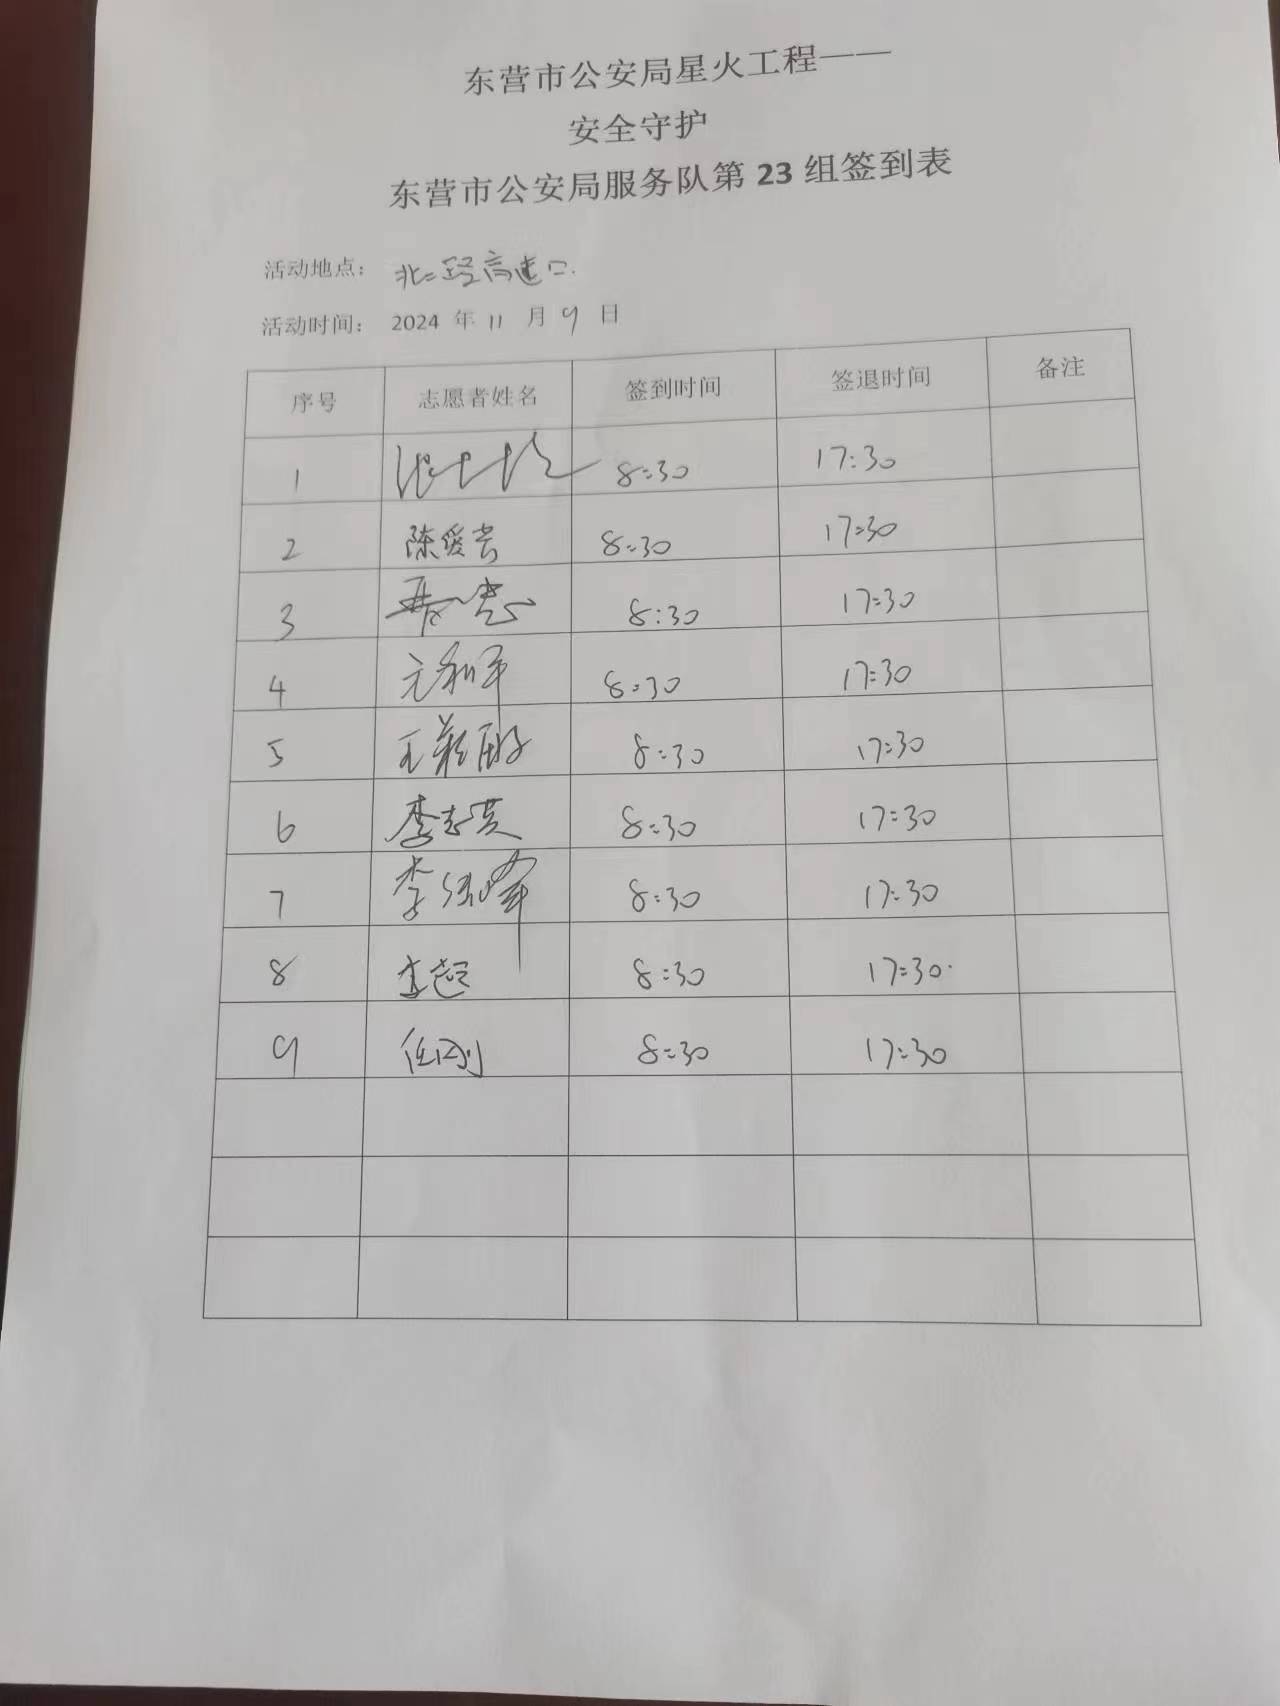 东营市公安局星火工程——
安全守护
东营市公安局服务队第 23 组签到表
活动地点： 北二路高速口.
活动时间： 2024 年 11 月 9 日
序号 志愿者姓名 签到时间 签退时间 备注
1 8:30 17:30
2 陈爱芳 8:30 17:30
3 8:30 17:30
4 元和平 8:30 17:30
5 8:30 17:30
6 李志英 8:30 17:30
7 8:30 17:30
8 李超 8:30 17:30
9 任刚 8:30 17:30